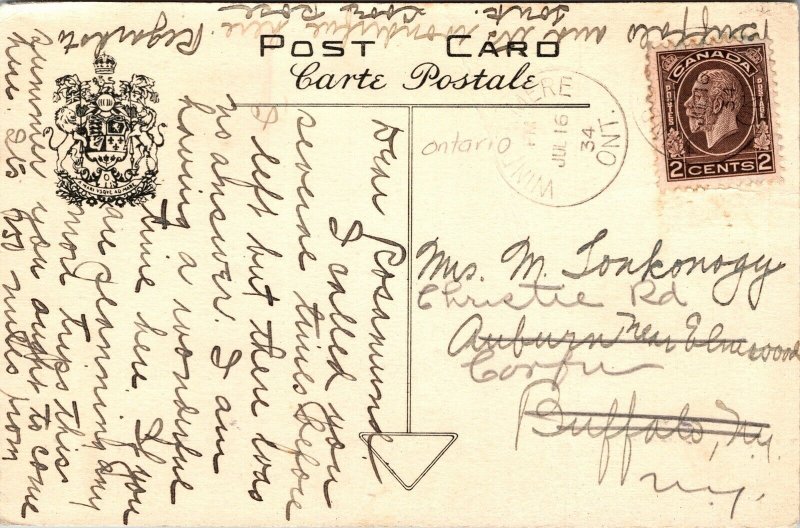 POST CARD
Carte Postale
Dear Rosamund.
I called you
several times before
I left but there was
no answer. I am
having a wonderful
time here. If you
are planning any
more trips this
summer you ought to come
here. It is
miles from
Buffalo and it's wonderful here
Regards to
WINDERMERE ONT.
PM
JUL 16
34
CANADA
2 CENTS 2
ontario
Mrs. M. Tonkonogy
Christie Rd
Auburn near Elmwood
Corfu
Buffalo, N.Y.
N.Y.